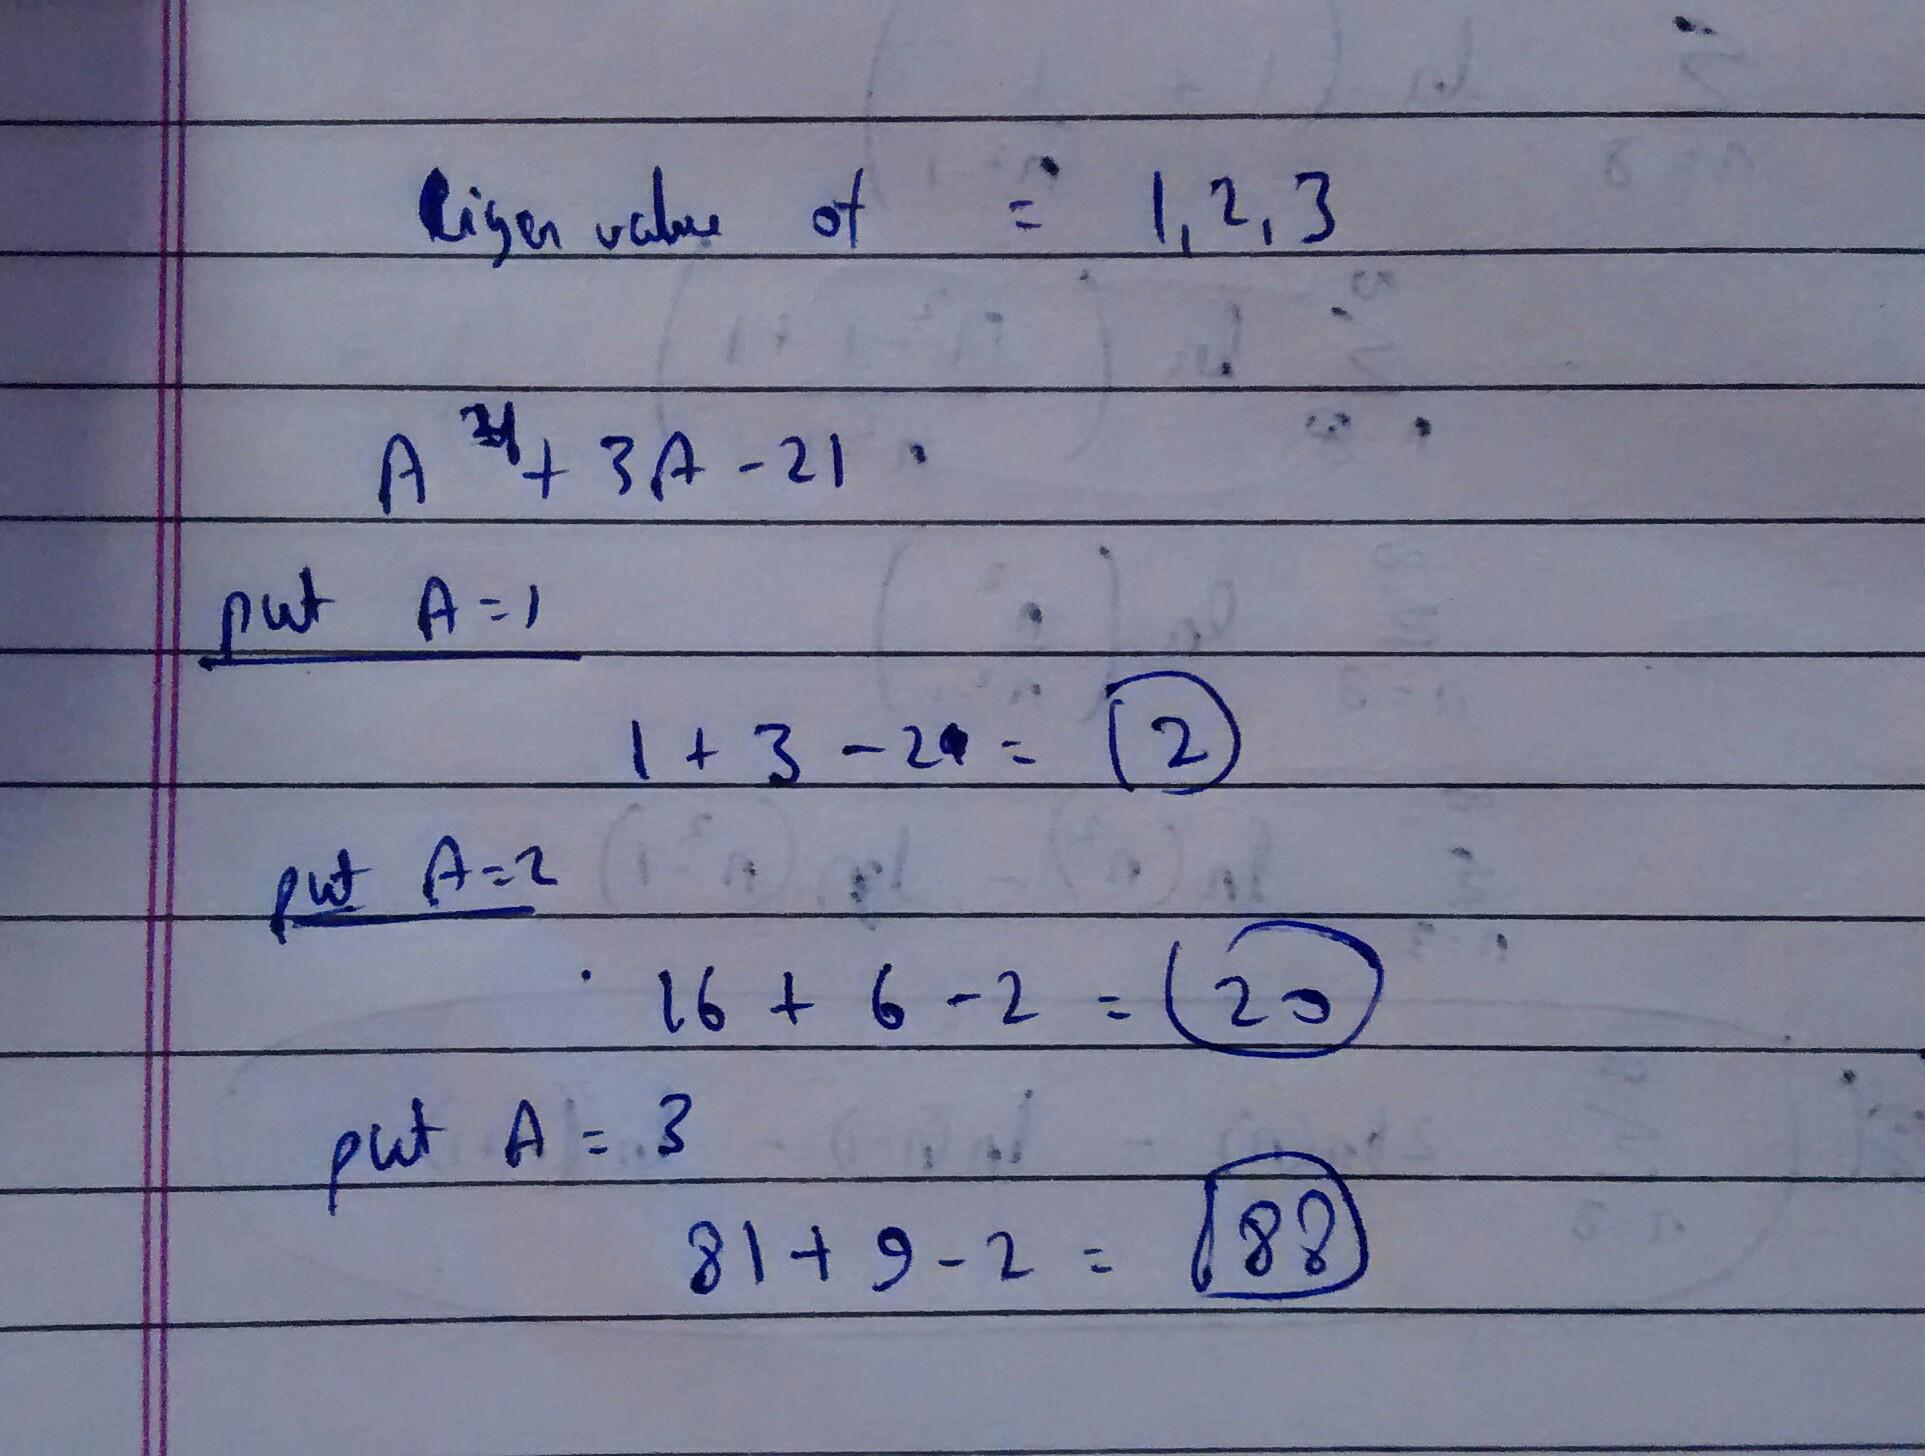 Eigen value of = 1, 2, 3
A⁴ + 3A - 21
put A=1
1 + 3 - 2 = 2
put A=2
16 + 6 - 2 = 20
put A = 3
81 + 9 - 2 = 88